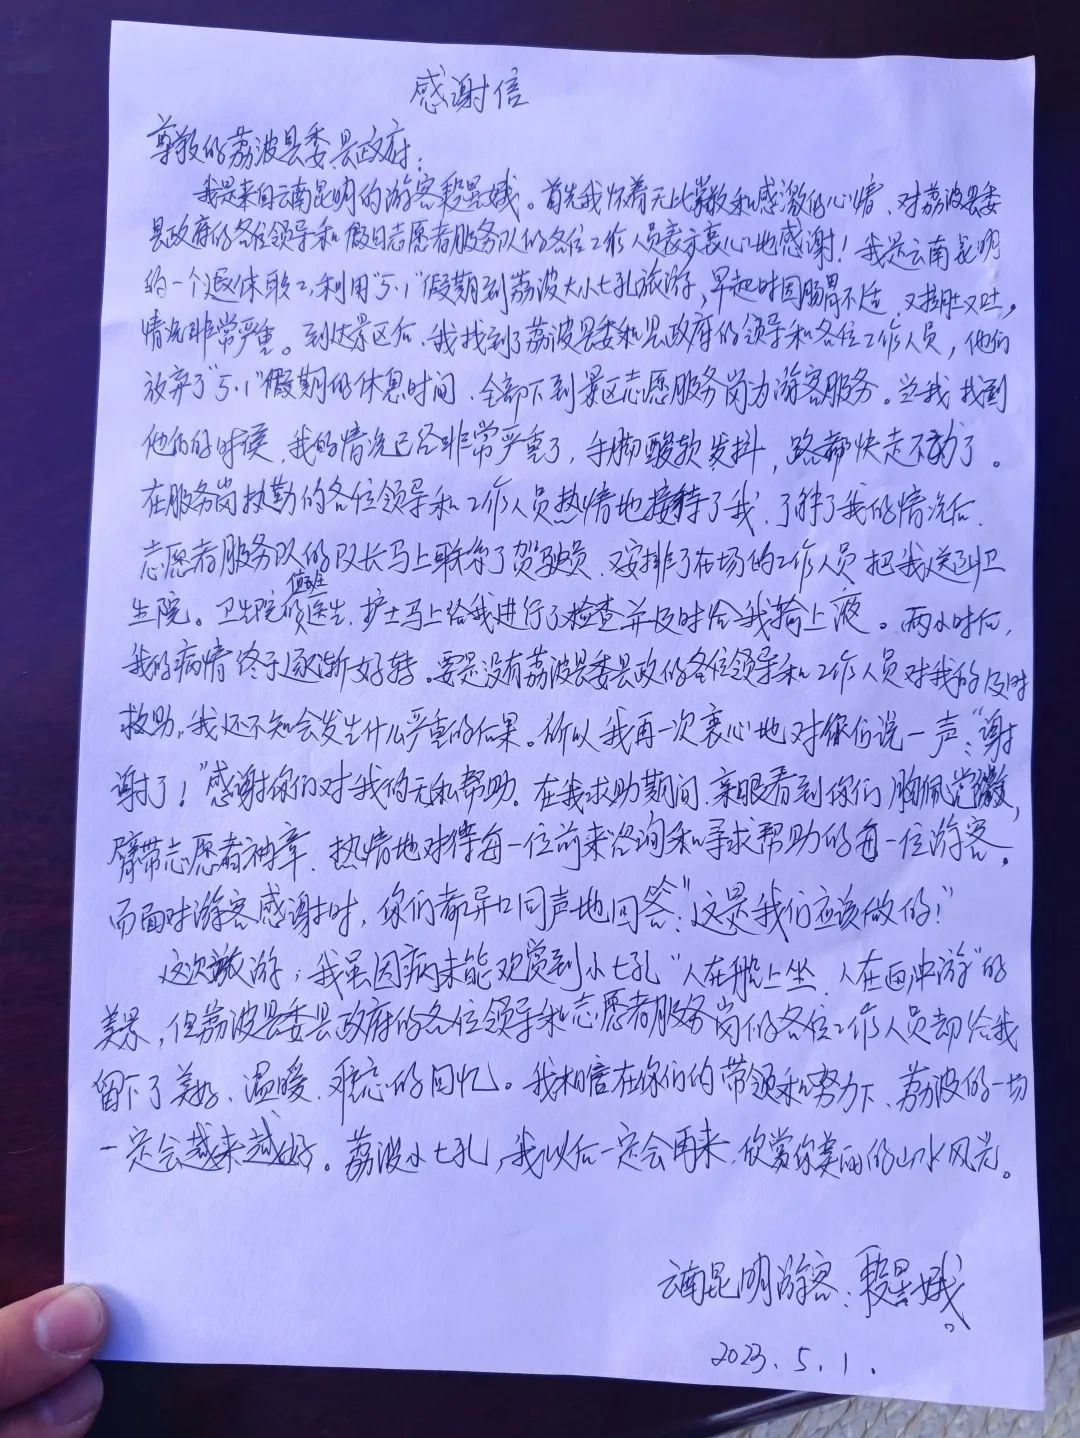 感谢信
尊敬的荔波县委县政府:
我是来自云南昆明的游客 娥。首先我怀着无比崇敬和感激的心情,对荔波县委
县政府的各位领导和假日志愿者服务队的各位工作人员表示衷心地感谢!我是云南昆明
的一个退休职工,利用"5.1"假期到荔波大小七孔旅游,早起时因肠胃不适,又拉肚又吐,
情况非常严重。到达景区后,我找到了荔波县委和县政府的领导和各位工作人员,他们
放弃了"5.1"假期的休息时间,全部下到景区志愿服务岗为游客服务。当我找到
他们的时候,我的情况已经非常严重了,手脚酸软发抖,路都快走不动了。
在服务岗执勤的各位领导和工作人员热情地接待了我,了解了我的情况后,
志愿者服务队的队长马上联系了驾驶员,又安排了在场的工作人员把我送到卫
生院。卫生院的值班医生,护士马上给我进行了检查并及时给我输上液。两小时后,
我的病情终于逐渐好转。要是没有荔波县委县政的各位领导和工作人员对我的及时
救助,我还不知会发生什么严重的后果。所以我再一次衷心地对你们说一声:"谢
谢了!"感谢你们对我的无私帮助。在我求助期间,亲眼看到你们胸佩党徽,
臂带志愿者袖章,热情地对待每一位前来咨询和寻求帮助的每一位游客。
而面对游客感谢时,你们都异口同声地回答:"这是我们应该做的!"
这次旅游,我虽因病未能观赏到小七孔"人在船上坐,人在画中游"的
美景,但荔波县委县政府的各位领导和志愿者服务岗们的各位工作人员却给我
留下了美好、温暖、难忘的回忆。我相信在你们的带领和努力下,荔波的一切
一定会越来越好。荔波小七孔,我以后一定会再来,欣赏你美丽的山水风光。
云南昆明游客: 娥
2023.5.1.